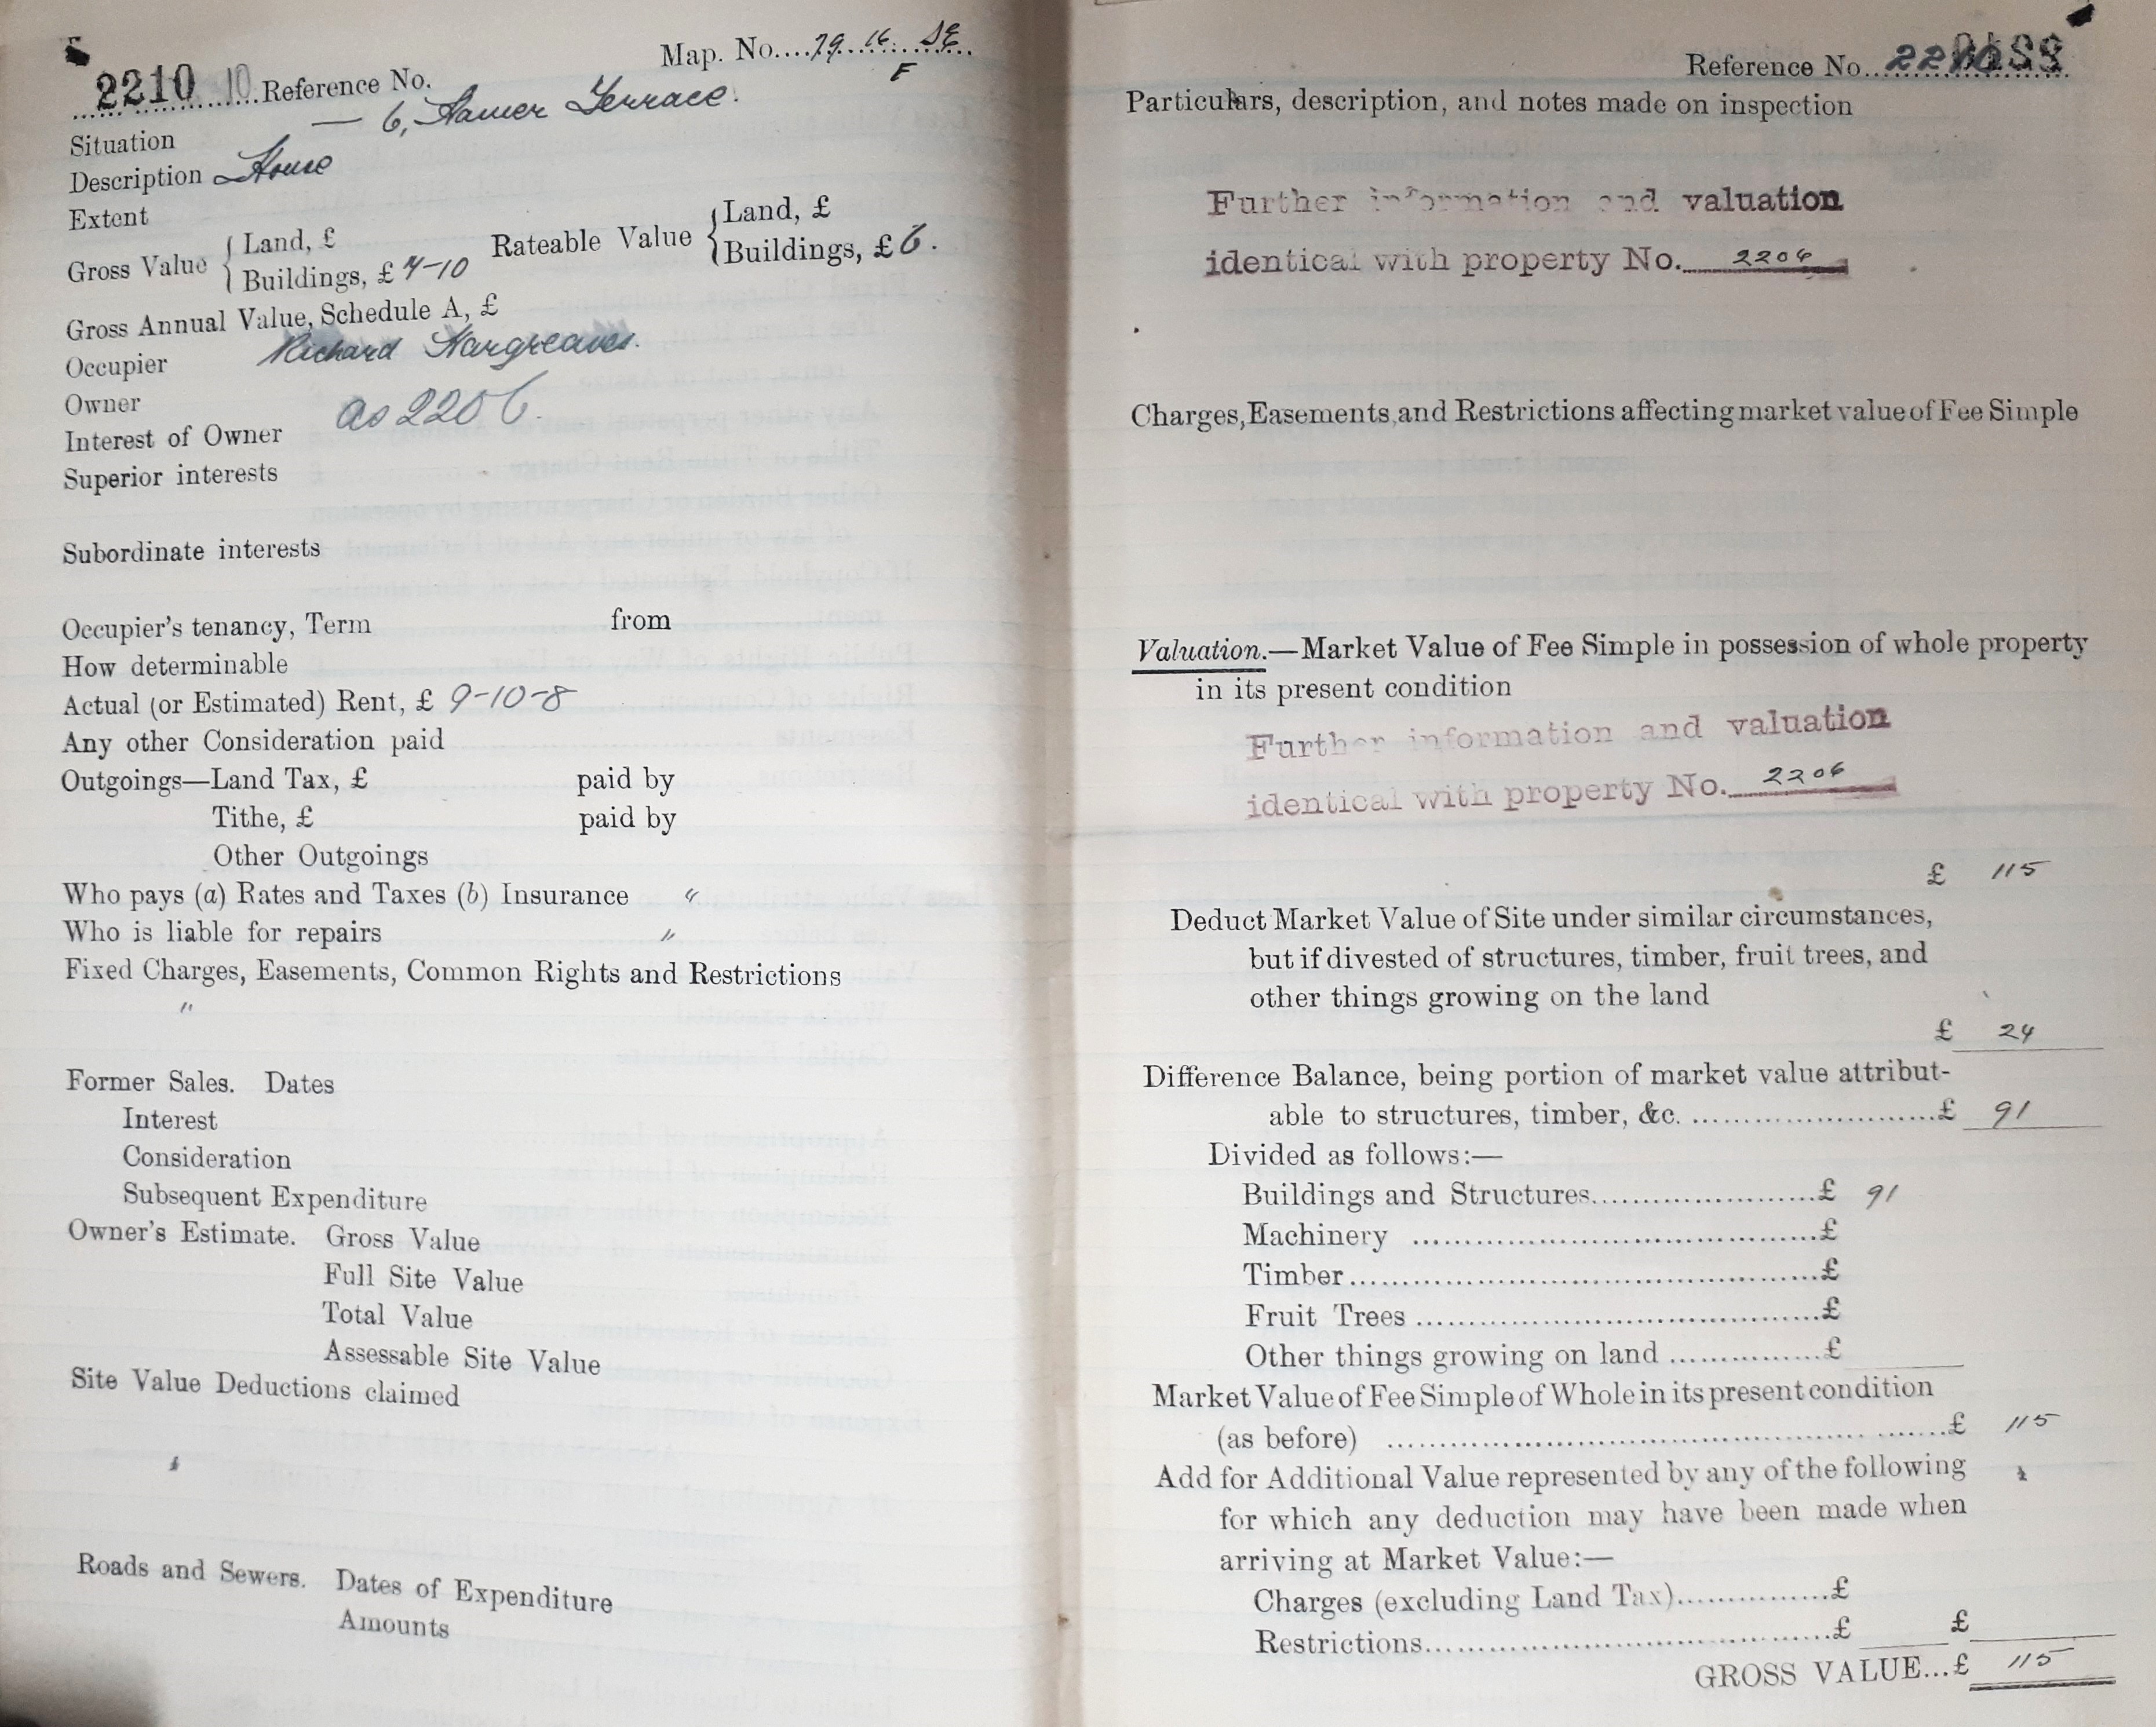 2210 10 Reference No. Map. No. 79. 16. SE
F
Situation — 6, Hamer Terrace.
Description House
Extent
Gross Value { Land, £ Rateable Value { Land, £
Buildings, £ 7-10 Buildings, £ 6.
Gross Annual Value, Schedule A, £
Occupier Richard Hargreaves.
Owner as 2206.
Interest of Owner
Superior interests
Subordinate interests
Occupier's tenancy, Term from
How determinable
Actual (or Estimated) Rent, £ 9-10-8
Any other Consideration paid
Outgoings—Land Tax, £ paid by
Tithe, £ paid by
Other Outgoings
Who pays (a) Rates and Taxes (b) Insurance "
Who is liable for repairs "
Fixed Charges, Easements, Common Rights and Restrictions
"
Former Sales. Dates
Interest
Consideration
Subsequent Expenditure
Owner's Estimate. Gross Value
Full Site Value
Total Value
Assessable Site Value
Site Value Deductions claimed
Roads and Sewers. Dates of Expenditure
Amounts
Reference No.
Particulars, description, and notes made on inspection
Further information and valuation
identical with property No. 2206
Charges, Easements, and Restrictions affecting market value of Fee Simple
Valuation.—Market Value of Fee Simple in possession of whole property
in its present condition
Further information and valuation
identical with property No. 2206
£ 115
Deduct Market Value of Site under similar circumstances,
but if divested of structures, timber, fruit trees, and
other things growing on the land
£ 24
Difference Balance, being portion of market value attribut-
able to structures, timber, &c. ........................£ 91
Divided as follows:—
Buildings and Structures.......................£ 91
Machinery .........................................£
Timber...............................................£
Fruit Trees .........................................£
Other things growing on land ...............£
Market Value of Fee Simple of Whole in its present condition
(as before) ..........................................................£ 115
Add for Additional Value represented by any of the following
for which any deduction may have been made when
arriving at Market Value:—
Charges (excluding Land Tax)...............£
Restrictions..........................................£ £
GROSS VALUE...£ 115